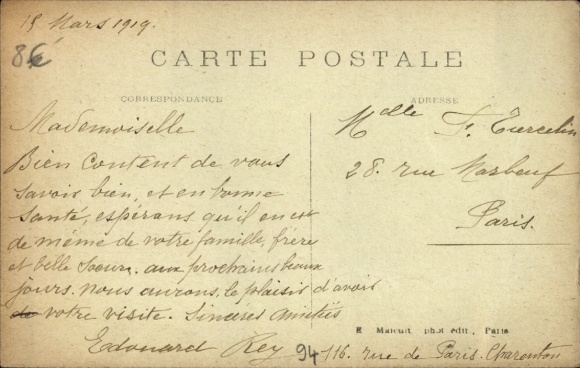 15 Mars 1919.
86
CARTE POSTALE
CORRESPONDANCE
ADRESSE
Mademoiselle
Bien Content de vous
savoir bien, et en bonne
santé, espérons qu'il en est
de même de votre famille, frère
et belle Soeur. aux prochains beaux
jours. nous aurons, le plaisir d'avoir
votre visite. Sincères Amitiés
Edouard Rey
Melle F. Turcelin
28. rue Marbeuf
Paris.
E Malcuit phot édit., Paris
94 116. rue de Paris. Charenton